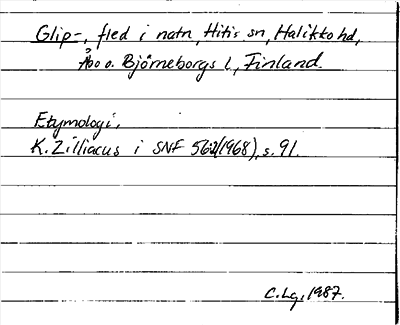 Glip-, fled i natn, Hitis sn, Halikko hd,
Åbo o. Björneborgs l., Finland.
Etymologi.
K. Zilliacus i SNF 56 (1968), s. 91.
C. Lg, 1987.